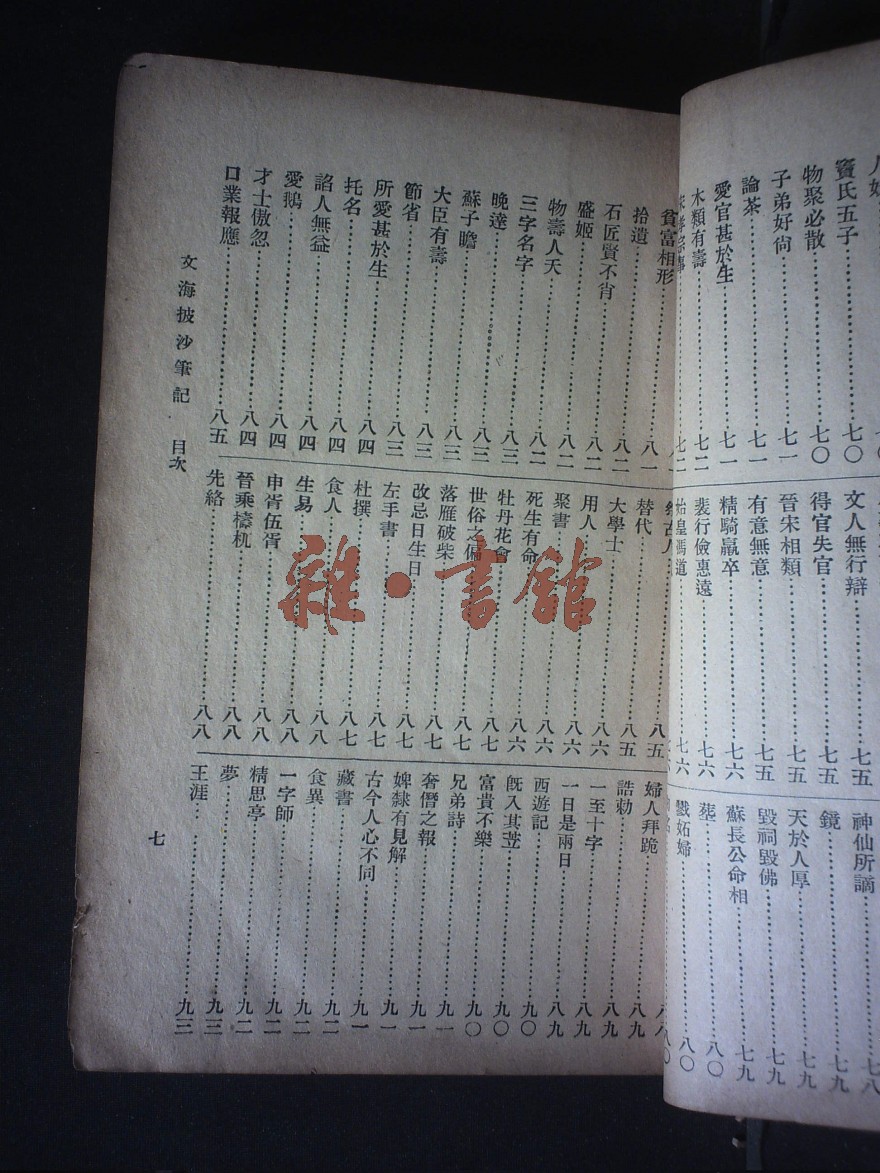 竇氏五子⋯⋯七〇
物聚必散⋯⋯七〇
子弟好尙⋯⋯七一
論茶⋯⋯七一
愛官甚於生⋯⋯七一
木類有壽⋯⋯七二
文人無行辯⋯⋯七五
得官失官⋯⋯七五
晉宋相類⋯⋯七五
有意無意⋯⋯七五
精騎羸卒⋯⋯七六
裴行儉惠遠⋯⋯七六
始皇馮道⋯⋯七六
神仙所謫⋯⋯七八
鏡⋯⋯七九
天於人厚⋯⋯七九
毀祠毀佛⋯⋯七九
蘇長公命相⋯⋯七九
葬⋯⋯八〇
戮妬婦⋯⋯八〇
貧富相形⋯⋯八一
拾遺⋯⋯八一
石匠賢不肖⋯⋯八二
盛姬⋯⋯八二
物壽人夭⋯⋯八二
三字名字⋯⋯八二
晚達⋯⋯八三
蘇子瞻⋯⋯八三
大臣有壽⋯⋯八三
節省⋯⋯八三
所愛甚於生⋯⋯八三
托名⋯⋯八四
諂人無益⋯⋯八四
愛鵝⋯⋯八四
才士傲忽⋯⋯八四
口業報應⋯⋯八五
替代⋯⋯八五
大學士⋯⋯八五
用人⋯⋯八六
聚書⋯⋯八六
死生有命⋯⋯八六
牡丹花會⋯⋯八六
世俗之偏⋯⋯八七
落雁破柴⋯⋯八七
改忌日生日⋯⋯八七
左手書⋯⋯八七
杜撰⋯⋯八七
食人⋯⋯八七
生易⋯⋯八八
申胥伍胥⋯⋯八八
晉乘檮杌⋯⋯八八
先絡⋯⋯八八
婦人拜跪⋯⋯八八
誥勅⋯⋯八九
一至十字⋯⋯八九
一日是兩日⋯⋯八九
西遊記⋯⋯八九
旣入其苙⋯⋯九〇
富貴不樂⋯⋯九〇
兄弟詩⋯⋯九〇
奢僭之報⋯⋯九一
婢隸有見解⋯⋯九一
古今人心不同⋯⋯九一
藏書⋯⋯九一
食異⋯⋯九二
一字師⋯⋯九二
精思亭⋯⋯九二
夢⋯⋯九三
王涯⋯⋯九三
文海披沙筆記 目次
七
雜·書館